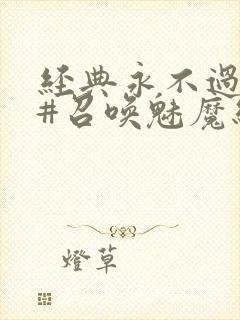 經典永不過
#召喚魅魔
燈草